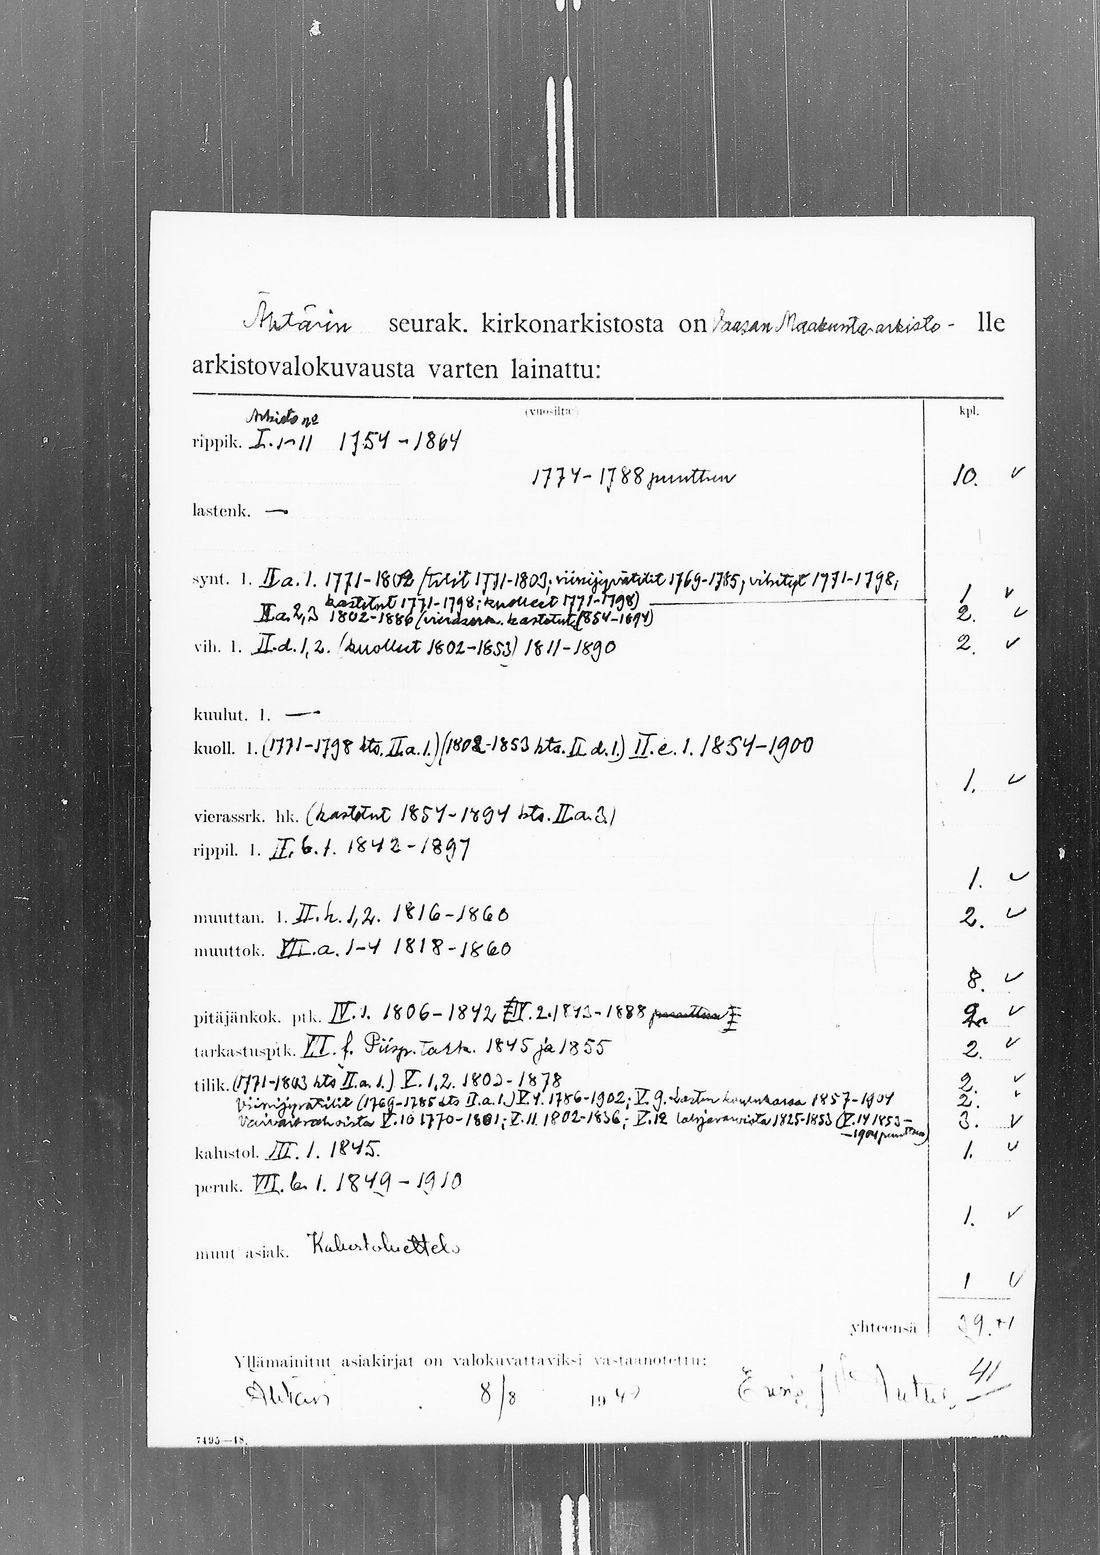 Ähtärin seurak. kirkonarkistosta on Vaasan Maakunta-arkisto - lle
arkistovalokuvausta varten lainattu:
(vuosilta) kpl.
Arkisto nº
rippik. I. 1-11 1754-1864
1774-1788 puuttuu 10. ✓
lastenk. —
synt. l. II a. 1. 1771-1802 (tilit 1771-1803; viinijyvätilit 1769-1785; vihityt 1771-1798;
kastetut 1771-1798; kuolleet 1771-1798) 1 ✓
II a. 2,3 1802-1886 (vierasrk. kastetut 1854-1894) 2. ✓
vih. l. II.d. 1,2. (kuolleet 1802-1853) 1811-1890 2. ✓
kuulut. l. —
kuoll. l. (1771-1798 kts. II.a.1.) (1802-1853 kts. II.d.1.) II.e.1. 1854-1900
1. ✓
vierassrk. hk. (kastetut 1854-1894 kts. II.a.3.)
rippil. l. II. b. 1. 1842-1897
1. ✓
muuttan. l. II.h. 1,2. 1816-1860 2. ✓
muuttok. VII.a. 1-4 1818-1860
8. ✓
pitäjänkok. ptk. IV. 1. 1806-1842 IV. 2. 1843-1888 puuttuu 2. ✓
tarkastusptk. VI. f. Piisp. tark. 1845 ja 1855 2. ✓
tilik. (1771-1803 kts II.a.1.) V. 1,2. 1803-1878 2. ✓
Viinijyvätilit (1769-1785 kts II.a.1.) V.4. 1786-1902; V.9. Lasten 1857-1904 2. ✓
V.10 1770-1801; V.11 1802-1836; V.12 1825-1853 (V.14 1853- 3. ✓
-1904 puuttuu)
kalustol. III. 1. 1845. 1. ✓
peruk. VII.b. 1. 1849-1910
1. ✓
muut asiak. Kalustoluettelo
1 ✓
yhteensä 39. +1
Yllämainitut asiakirjat on valokuvattaviksi vastaanotettu: 41
Ähtäri 8/8 19
7495—48.